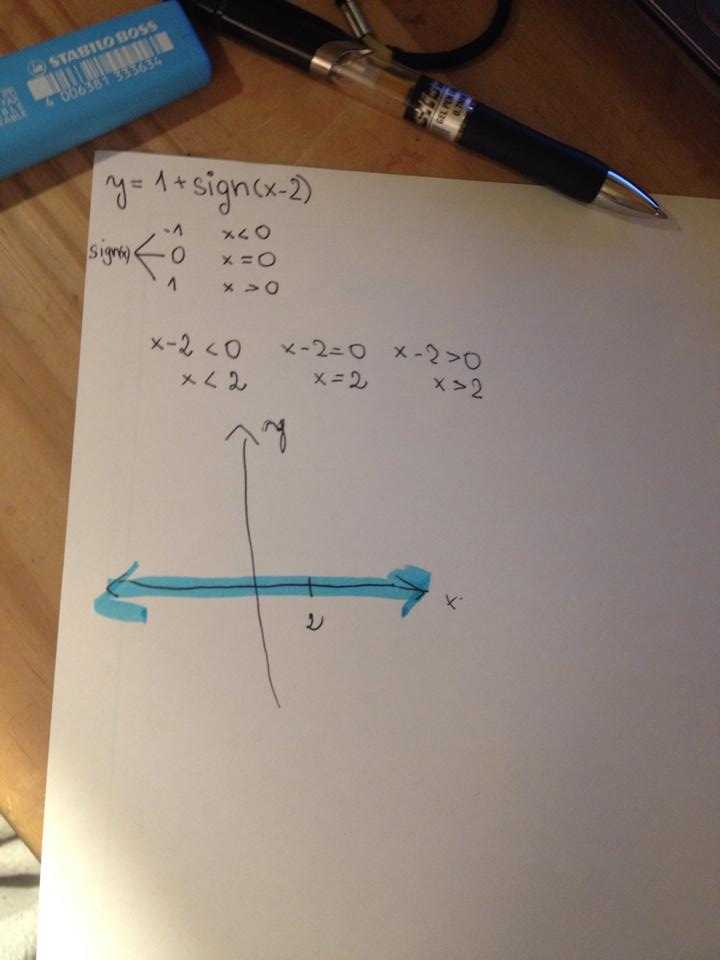 STABILO BOSS
4 006381 333634
GEL
y = 1 + sign(x-2)
sign(x) -1 x < 0
0 x = 0
1 x > 0
x-2 < 0 x-2 = 0 x-2 > 0
x < 2 x = 2 x > 2
y
x
2